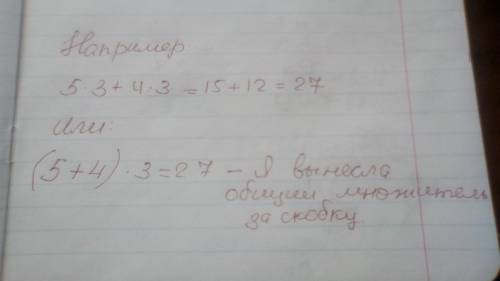 Например
5·3+4·3=15+12=27
Или:
(5+4)·3=27 – Я вынесла
общий множитель
за скобку